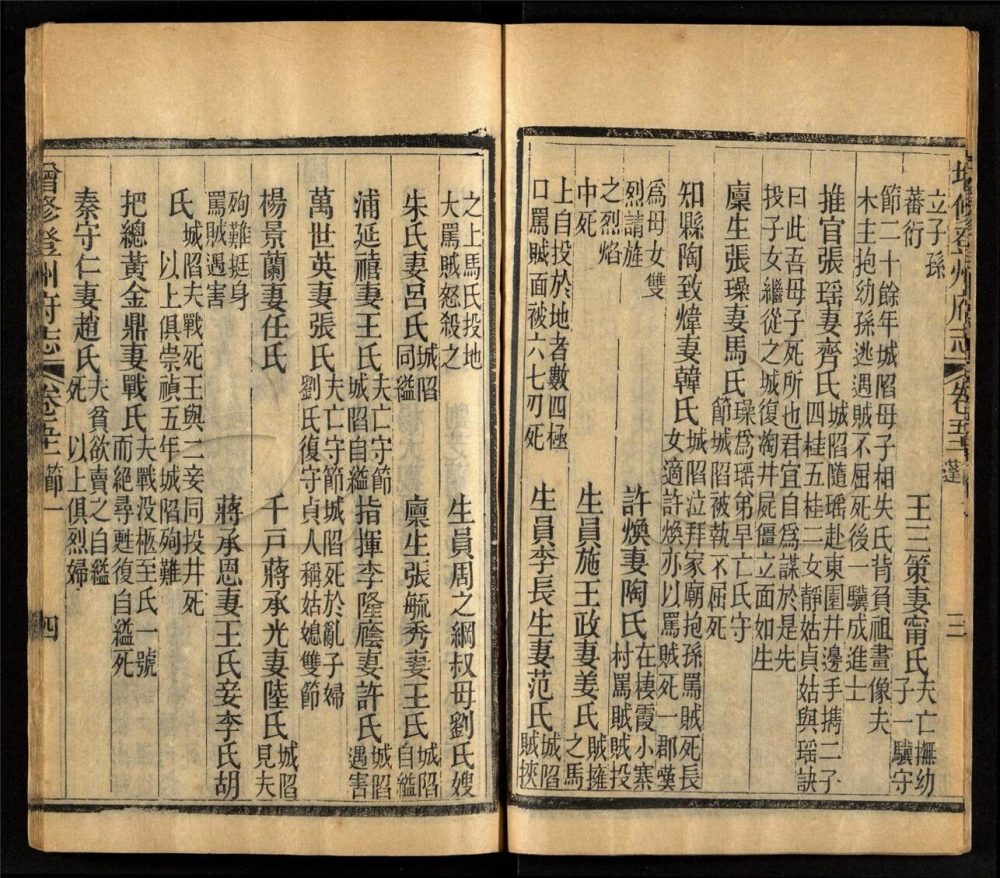 增修登州府志 卷五十二 蓬 三
立子孫
蕃衍
王三策妻甯氏
夫亡撫幼
子一驥守
節二十餘年城陷母子相失氏背負祖畫像夫
木主抱幼孫逃遇賊不屈死後一驥成進士
推官張瑶妻齊氏
城陷隨瑶赴東園井邊手攜二子
四桂五桂二女靜姑貞姑與瑶訣
曰此吾母子死所也君宜自為謀於是先
投子女繼從之城復淘井屍僵立面如生
廩生張璪妻馬氏
璪為瑶弟早亡氏守
節城陷被執不屈死
知縣陶致煒妻韓氏
城陷泣拜家廟抱孫罵賊死長
女適許煥亦以罵賊死一郡羙
為母女雙
烈請旌
許煥妻陶氏
在棲霞小寨
村罵賊賊投
之烈焰
中死
生員施王政妻姜氏
賊擁
之馬
上自投於地者數四極
口罵賊面被六七刃死
生員李長生妻范氏
城陷
賊挾
之上馬氏投地
大罵賊怒殺之
生員周之綱叔母劉氏嫂
朱氏妻呂氏
城陷
同縊
廩生張毓秀妻王氏
城陷
自縊
浦延禧妻王氏
夫亡守節
城陷自縊
指揮李隆廕妻許氏
城陷
遇害
萬世英妻張氏
夫亡守節城陷死於亂子婦
劉氏復守貞人稱姑媳雙節
楊景蘭妻任氏
千戶蔣承光妻陸氏
城陷
見夫
殉難挺身
罵賊遇害
蔣承恩妻王氏妾李氏胡
氏
城陷夫戰死王與二妾同投井死
以上俱崇禎五年城陷殉難
把總黃金鼎妻戰氏
夫戰没柩至氏一號
而絕尋甦復自縊死
秦守仁妻趙氏
夫貧欲賣之自縊
死 以上俱烈婦
增修登州府志 卷五十二 節一 四